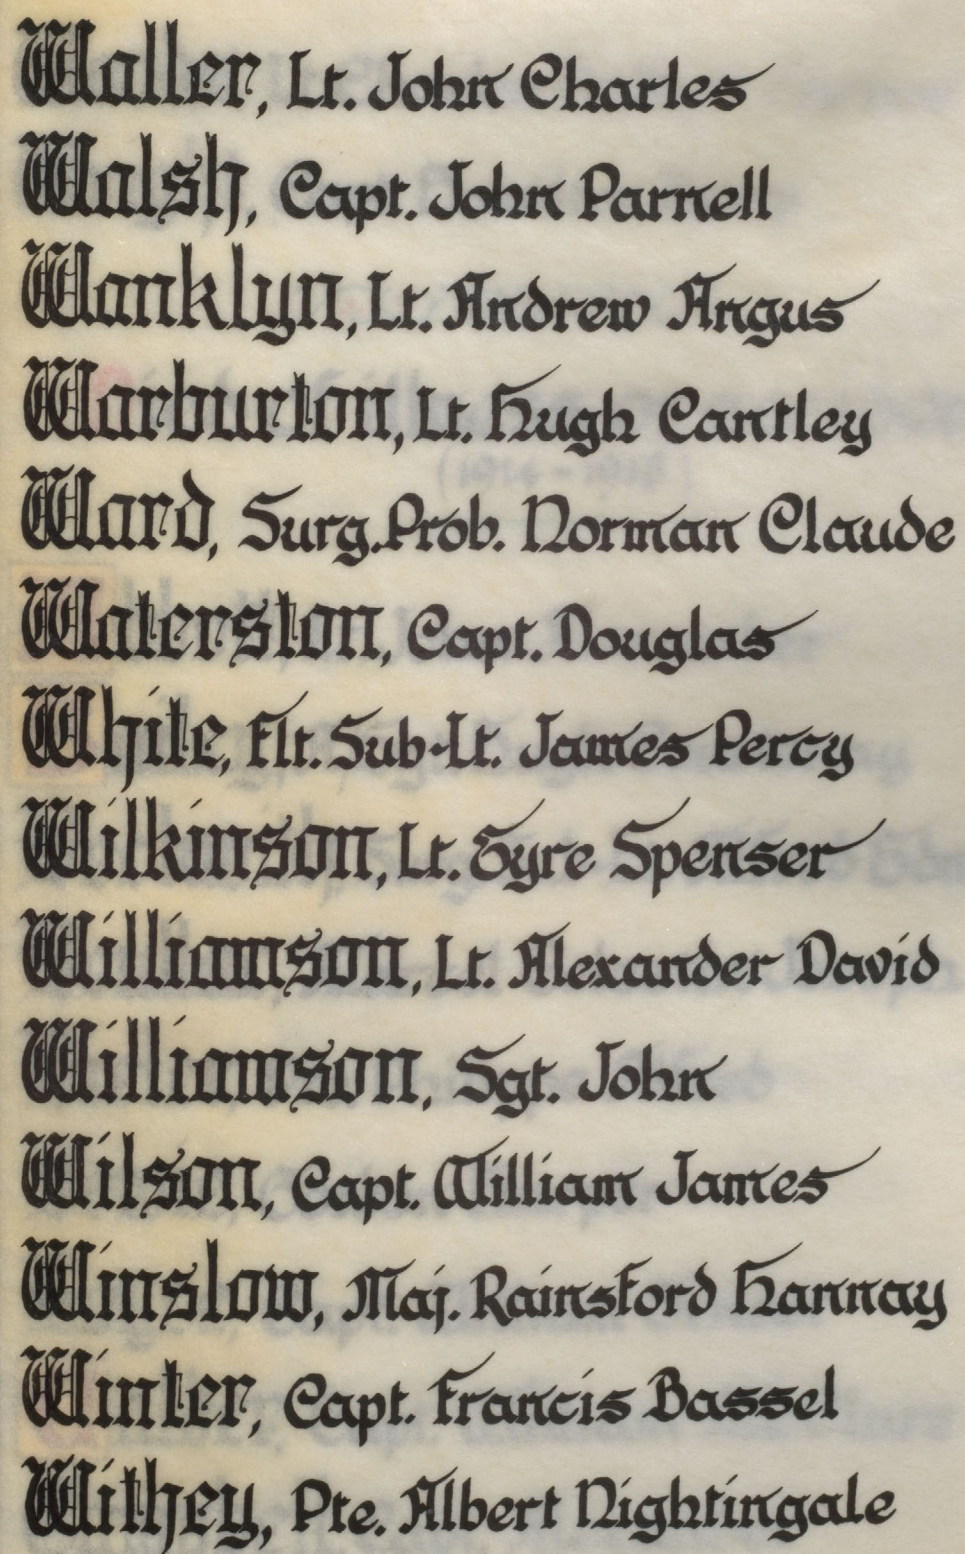 Waller, Lt. John Charles
Walsh, Capt. John Parnell
Wanklyn, Lt. Andrew Angus
Warburton, Lt. Hugh Cantley
Ward, Surg. Prob. Norman Claude
Waterston, Capt. Douglas
White, Flt. Sub-Lt. James Percy
Wilkinson, Lt. Eyre Spenser
Williamson, Lt. Alexander David
Williamson, Sgt. John
Wilson, Capt. William James
Winslow, Maj. Rainsford Hannay
Winter, Capt. Francis Bassel
Withey, Pte. Albert Nightingale